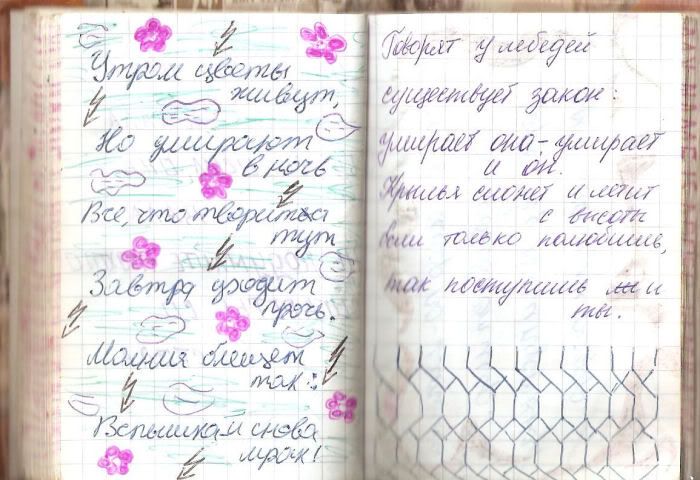 Утром цветы
живут,
Но умирают
в ночь
Все, что твориться
тут
Завтра уходит
прочь.
Молния блещет
так:
Вспышка-и снова
мрак!
Говорят у лебедей
существует закон:
умирает она-умирает
и он.
Крылья сложет и летит
с высоты
если только полюбишь,
так поступишь и
ты.